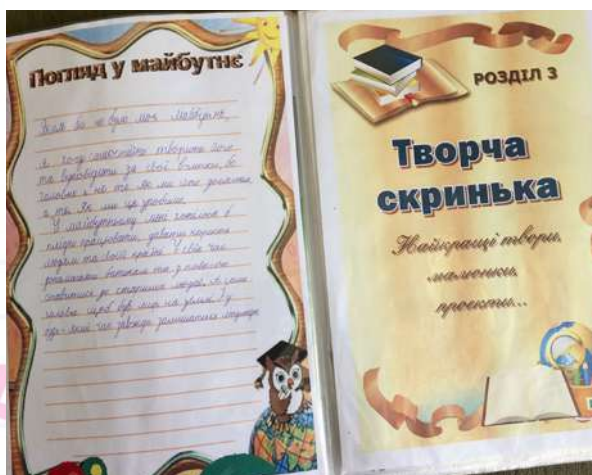 Погляд у майбутнє
Яким би не було моє майбутнє,
я хочу самостійно творити його
та відповідати за свої вчинки, бо
головне не те як ми
а те як ми це зробимо.
У майбутньому мені хотілося б
плідно працювати, давати користь
людям та своїй країні. У свій час
допомагати батькам та з повагою
ставитися до старших людей. А саме
головне щоб був мир на землі і у
будь-який час завжди залишатися людиною
РОЗДІЛ 3
Творча
скринька
Найкращі твори,
малюнки,
проекти...